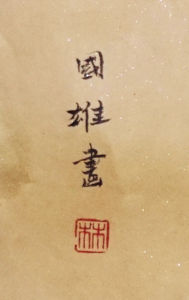 國雄畫
林